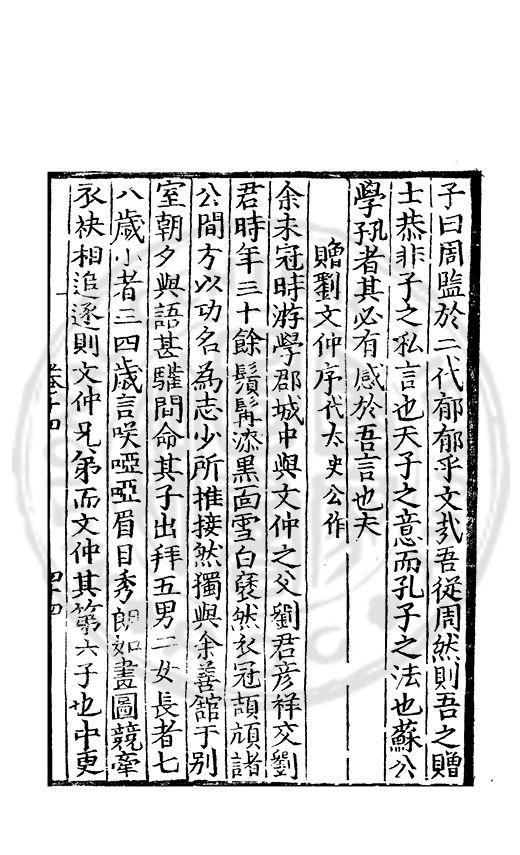 子曰周監於二代郁郁乎文哉吾從周然則吾之贈
士恭非子之私言也天子之意而孔子之法也蘇公
學孔者其必有感於吾言也夫
贈劉文仲序代太史公作
余未冠時游學郡城中與文仲之父劉君彥祥交劉
君時年三十餘鬚髯漆黑面雪白褎然衣冠頡頏諸
公間方以功名為志少所推接然獨與余善館于别
室朝夕與語甚驩間命其子出拜五男二女長者七
八歲小者三四歲言咲啞啞眉目秀朗如畫圖競牽
衣袂相追逐則文仲兄弟而文仲其第六子也中更
卷十四
四十四